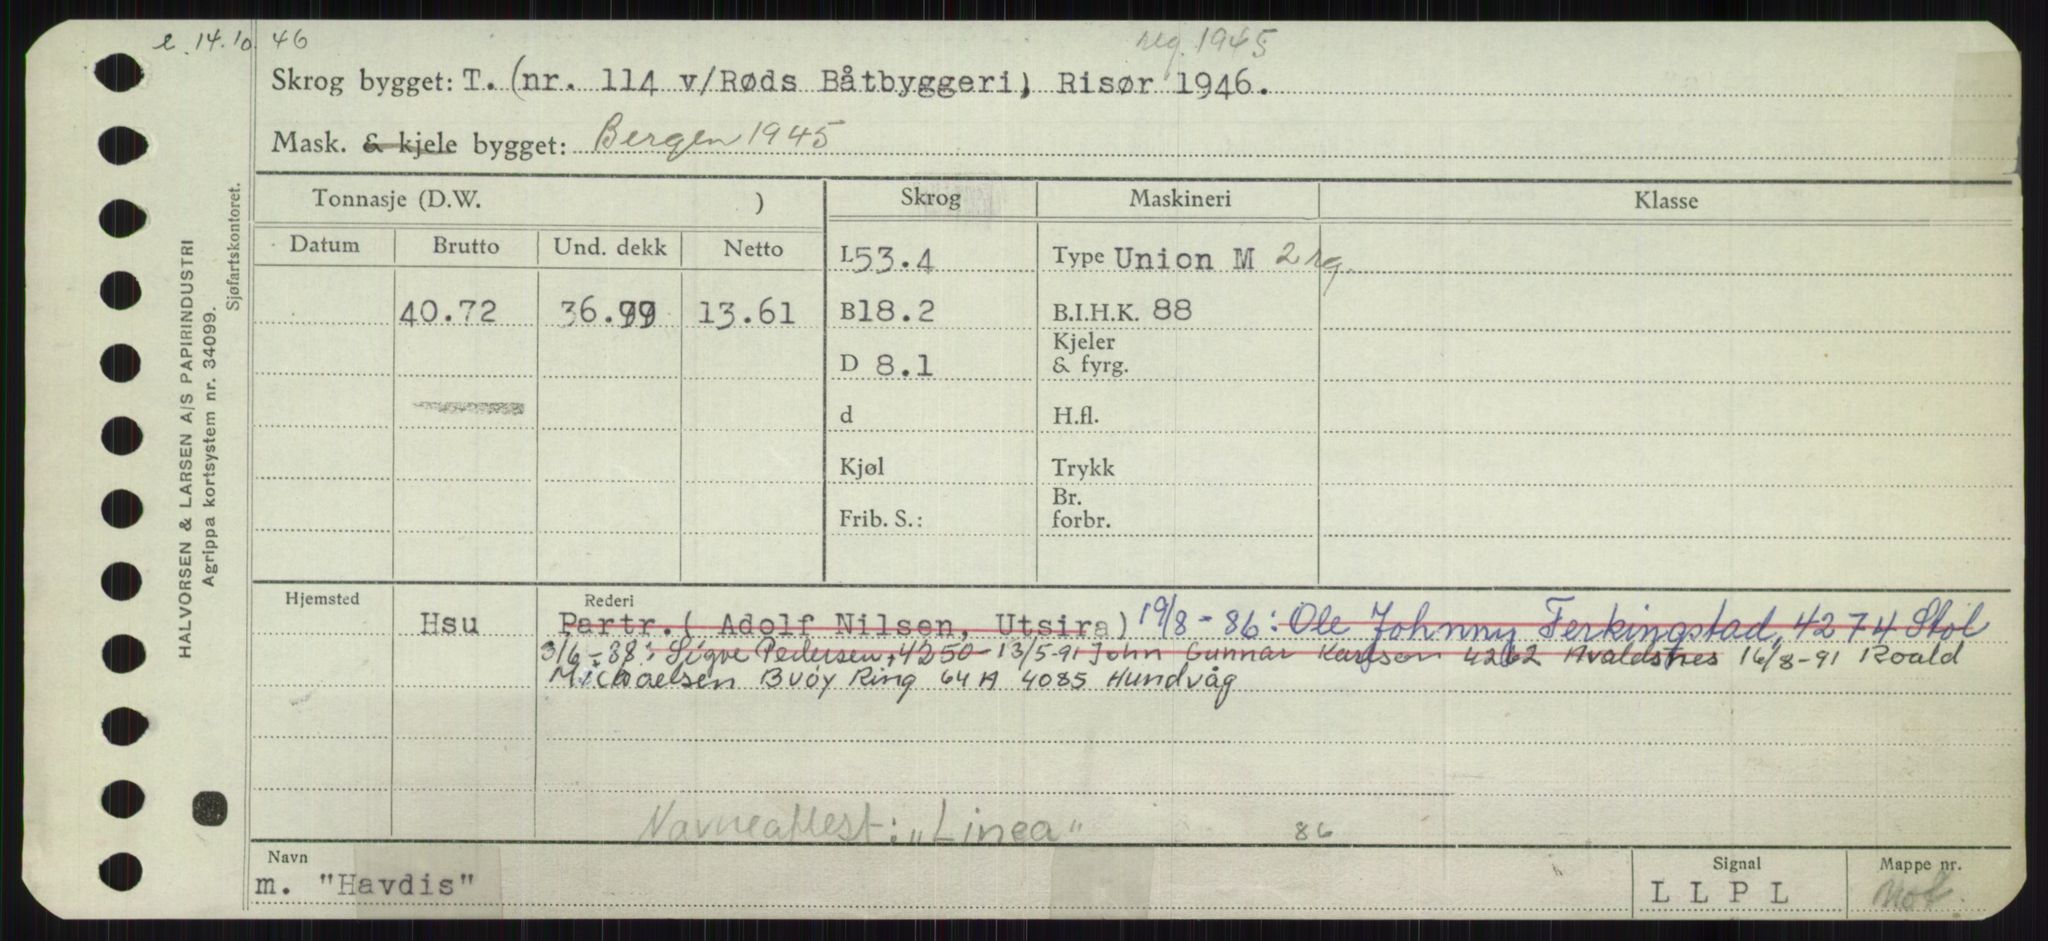 e 14.10.46 reg. 1945
Skrog bygget: T. (nr. 114 v/Røds Båtbyggeri, Risør 1946.
Mask. & kjele bygget: Bergen 1945
Tonnasje (D.W. ) Skrog Maskineri Klasse
Datum Brutto Und. dekk Netto
L 53.4 Type Union M 2 rg.
40.72 36.99 13.61 B 18.2 B.I.H.K. 88
D 8.1 Kjeler
& fyrg.
d H.fl.
Kjøl Trykk
Frib. S.: Br.
forbr.
Hjemsted Rederi
Hsu Partr.( Adolf Nilsen, Utsira) 19/8-86: Ole Johnny Ferkingstad, 4274 Stol
3/6-88: Sigve Pedersen, 4250 - 13/5-91 John Gunnar Karlson 4262 Avaldsnes 16/8-91 Roald
Michaelsen Buøy Ring 64 A 4085 Hundvåg
Navneattest: "Linea" 86
Navn Signal Mappe nr.
m. "Havdis" L L P L Mot.
HALVORSEN & LARSEN A/S PAPIRINDUSTRI
Agrippa kortsystem nr. 34099.
Sjøfartskontoret.